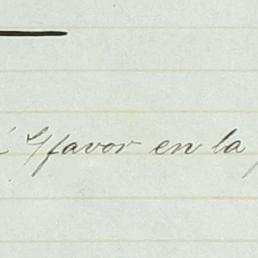 favor en la